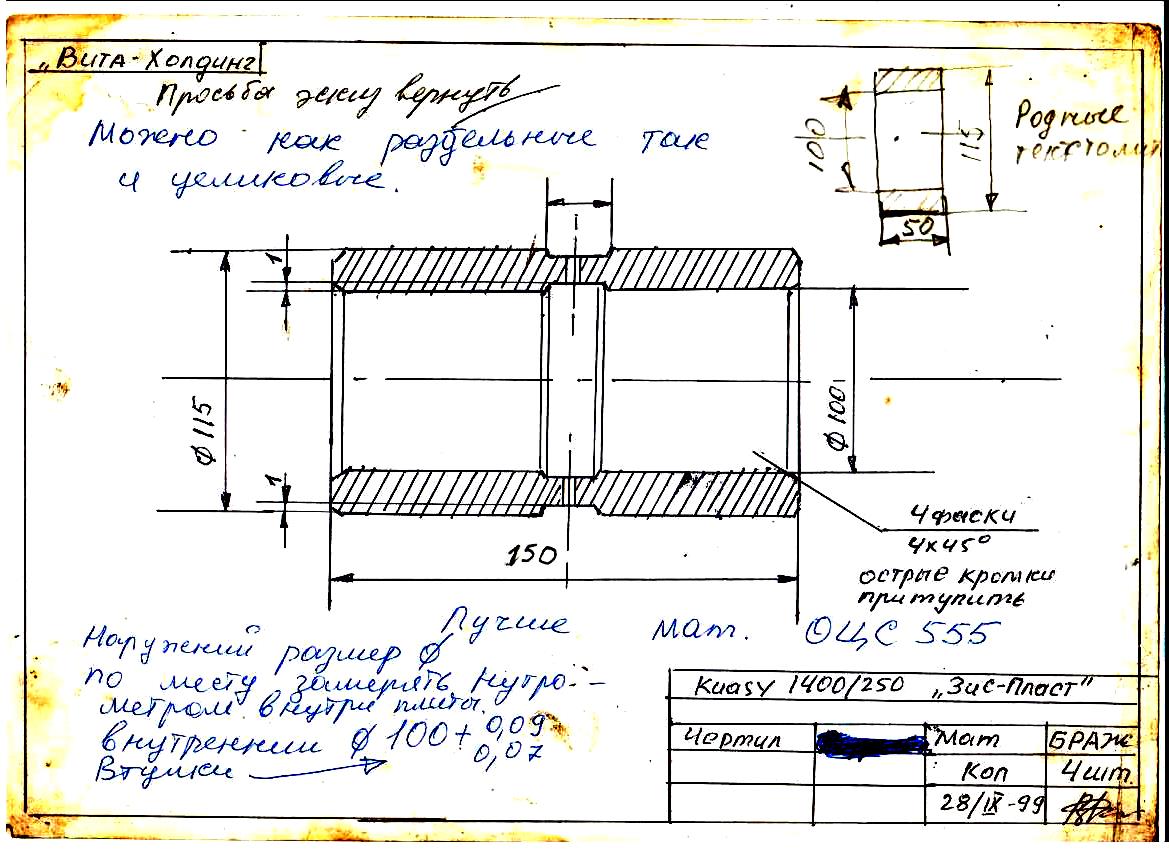 „Вита-Холдинг
Просьба эскиз вернуть
Можно как раздельные так
и целиковые.
Родные
текстолит
100
115
50
1
Ф 115
Ф 100
1
4 фаски
4х45°
острые кромки
притупить
150
Лучше
Наружний размер Ф
по месту замерять нутро-
метром внутри плиты.
внутренний Ф 100 + 0,09
0,07
Втулки
мат. ОЦС 555
Kuasy 1400/250 „Зис-Пласт"
Чертил
Мат БРАЖ
Кол 4 шт.
28/IX-99